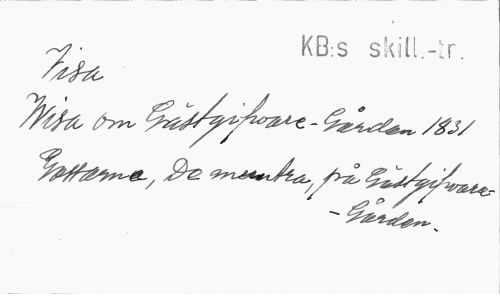 KB:s skill.-tr.
Visa
Wisa om Gästgifvare-Gården 1831
Gossarne, De muntra, på Gästgifvare-
-Gården.